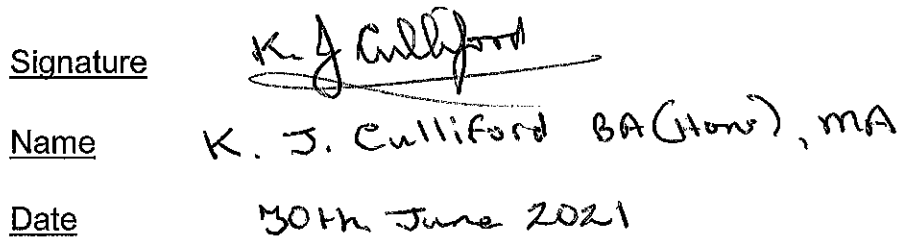 Signature K. J Culliford
Name K. J. Culliford BA (Hons), MA
Date 30th June 2021